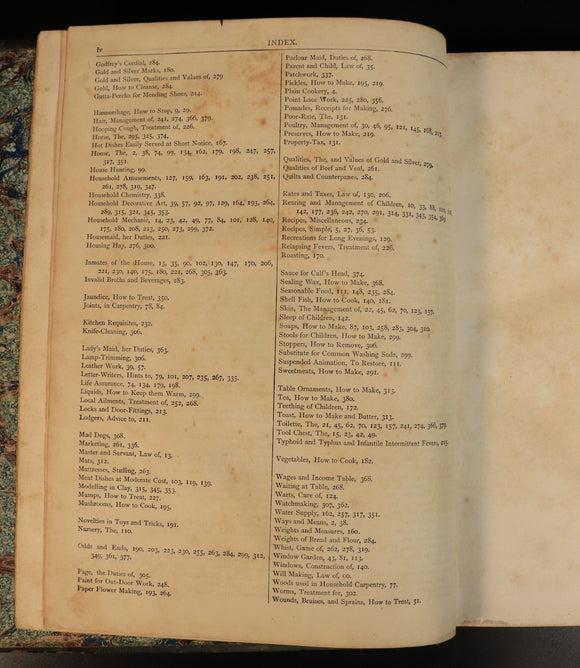 iv
INDEX.
Godfrey's Cordial, 284.
Gold and Silver Marks, 180.
Gold and Silver, Qualities and Values of, 279
Gold, How to Cleanse, 284.
Gutta-Percha for Mending Shoes, 214.
Hæmorrhage, How to Stop, 9, 29.
Hair, Management of, 241, 274, 366, 379.
Hooping Cough, Treatment of, 226.
Horse, The, 295, 325, 374.
Hot Dishes Easily Served at Short Notice, 167.
House, The, 2, 38, 74, 99, 134, 162, 179, 198, 247, 257,
317, 351.
House Hunting, 99.
Household Amusements, 127, 159, 163, 191, 202, 238, 251,
261, 278, 319, 347.
Household Chemistry, 338.
Household Decorative Art, 39, 57, 92, 97, 129, 164, 193, 264,
289, 315, 321, 345, 353.
Household Mechanic, 14, 23, 42, 49, 77, 84, 101, 128, 140,
175, 180, 208, 213, 250, 273, 299, 372.
Housemaid, her Duties, 221.
Housing Hay, 276, 300.
Inmates of the House, 15, 35, 90, 102, 130, 147, 170, 206,
221, 230, 140, 175, 180, 221, 268, 305, 363.
Invalid Broths and Beverages, 283.
Jaundice, How to Treat, 350.
Joints, in Carpentry, 78, 84.
Kitchen Requisites, 232.
Knife-Cleaning, 306.
Lady's Maid, her Duties, 363.
Lamp-Trimming, 306.
Leather Work, 39, 57.
Letter-Writers, Hints to, 79, 101, 207, 235, 267, 335.
Life Assurance, 74, 134, 179, 198.
Liquids, How to Keep them Warm, 299.
Local Ailments, Treatment of, 252, 268.
Locks and Door-Fittings, 213.
Lodgers, Advice to, 211.
Mad Dogs, 308.
Marketing, 261, 336.
Master and Servant, Law of, 13.
Mats, 312.
Mattresses, Stuffing, 263.
Meat Dishes at Moderate Cost, 103, 119, 139.
Modelling in Clay, 315, 345, 353.
Mumps, How to Treat, 227.
Mushrooms, How to Cook, 195.
Novelties in Toys and Tricks, 191.
Nursery, The, 110.
Odds and Ends, 190, 203, 223, 230, 255, 263, 284, 299, 312,
349, 361, 377.
Page, the Duties of, 305.
Paint for Out-Door Work, 248.
Paper Flower Making, 193, 264.
Parlour Maid, Duties of, 268.
Parent and Child, Law of, 35.
Patchwork, 337.
Pickles, How to Make, 195, 219.
Plain Cookery, 4.
Point Lace Work, 225, 280, 356.
Pomades, Receipts for Making, 276.
Poor-Rate, The, 131.
Poultry, Management of, 30, 46, 95, 121, 145, 168, 217.
Preserves, How to Make, 219.
Property-Tax, 131.
Qualities, The, and Values of Gold and Silver, 279.
Qualities of Beef and Veal, 261.
Quilts and Counterpanes, 284.
Rates and Taxes, Law of, 130, 206.
Rearing and Management of Children, 10, 33, 88,
142, 177, 236, 242, 270, 291, 314, 331, 343, 354, 369.
Recipes, Miscellaneous, 234.
Recipes, Simple, 5, 27, 36, 53.
Recreations for Long Evenings, 129.
Relapsing Fevers, Treatment of, 226.
Roasting, 170.
Sauce for Calf's Head, 374.
Sealing Wax, How to Make, 368.
Seasonable Food, 111, 148, 235, 284.
Shell Fish, How to Cook, 140, 181.
Skin, The Management of, 22, 45, 62, 70, 123, 157.
Sleep of Children, 142.
Soaps, How to Make, 87, 103, 258, 285, 304, 310.
Stools for Children, How to Make, 299.
Stoppers, How to Remove, 306.
Substitute for Common Washing Soda, 299.
Suspended Animation, To Restore, 111.
Sweetments, How to Make, 291.
Table Ornaments, How to Make, 313.
Tea, How to Make, 380.
Teething of Children, 172.
Toast, How to Make and Butter, 313.
Toilette, The, 21, 45, 62, 70, 123, 157, 241, 274, 366, 379.
Tool Chest, The, 15, 23, 42, 49.
Typhoid and Typhus and Infantile Intermittent Fevers, 215.
Vegetables, How to Cook, 182.
Wages and Income Table, 368.
Waiting at Table, 268.
Warts, Cure of, 124.
Watchmaking, 307, 362.
Water Supply, 162, 257, 317, 351.
Ways and Means, 2, 38.
Weights and Measures, 160.
Weights of Bread and Flour, 284.
Whist, Game of, 262, 278, 319.
Window Garden, 43, 81, 113.
Windows, Construction of, 140.
Will Making, Law of, 90.
Woods used in Household Carpentry, 77.
Worms, Treatment for, 302.
Wounds, Bruises, and Sprains, How to Treat, 51.